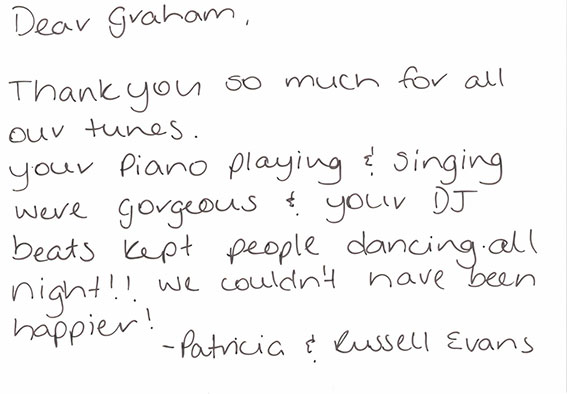 Dear Graham,
Thank you so much for all
our tunes.
your piano playing & singing
were gorgeous & your DJ
beats kept people dancing.all
night!! we couldn't have been
happier!
-Patricia & Russell Evans